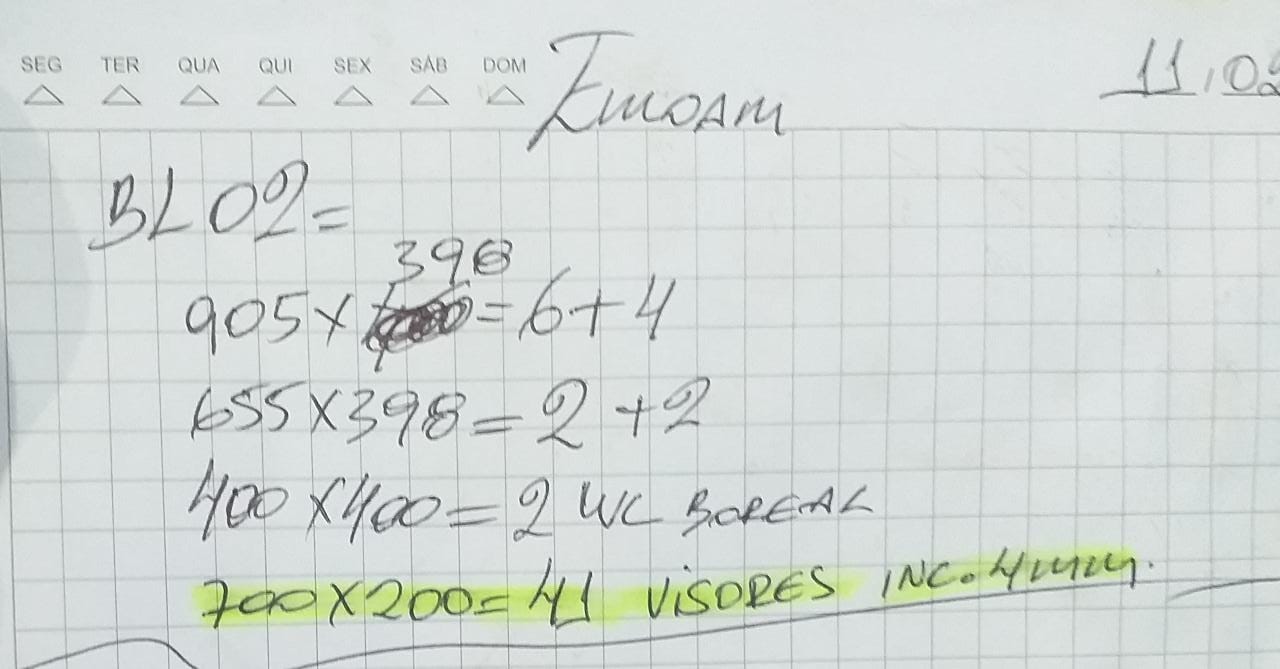 SEG TER QUA QUI SEX SÁB DOM
11.02
BL 02=
398
905 X = 6+4
655 X 398 = 2 + 2
400 X 400 = 2 WC BOREAL
700 X 200 = 41 VISORES INC. 4mm.